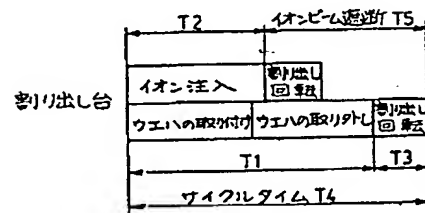 T2 イオンビーム遮断 T5
イオン注入 割り出し回転
割り出し台
ウエハの取り付け ウエハの取り外し 割り出し回転
T1 T3
サイクルタイム T4